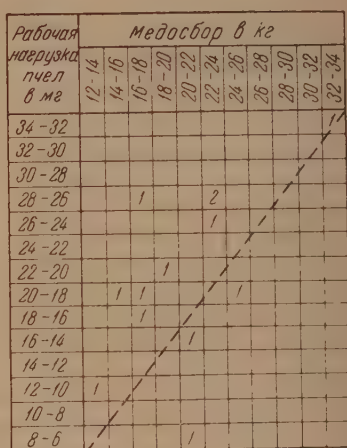 Рабочая нагрузка пчел в мг
Медосбор в кг
12-14 14-16 16-18 18-20 20-22 22-24 24-26 26-28 28-30 30-32 32-34
34-32 1
32-30
30-28
28-26 1 2
26-24 1
24-22
22-20 1
20-18 1 1 1
18-16 1
16-14 1
14-12
12-10 1
10-8
8-6 1